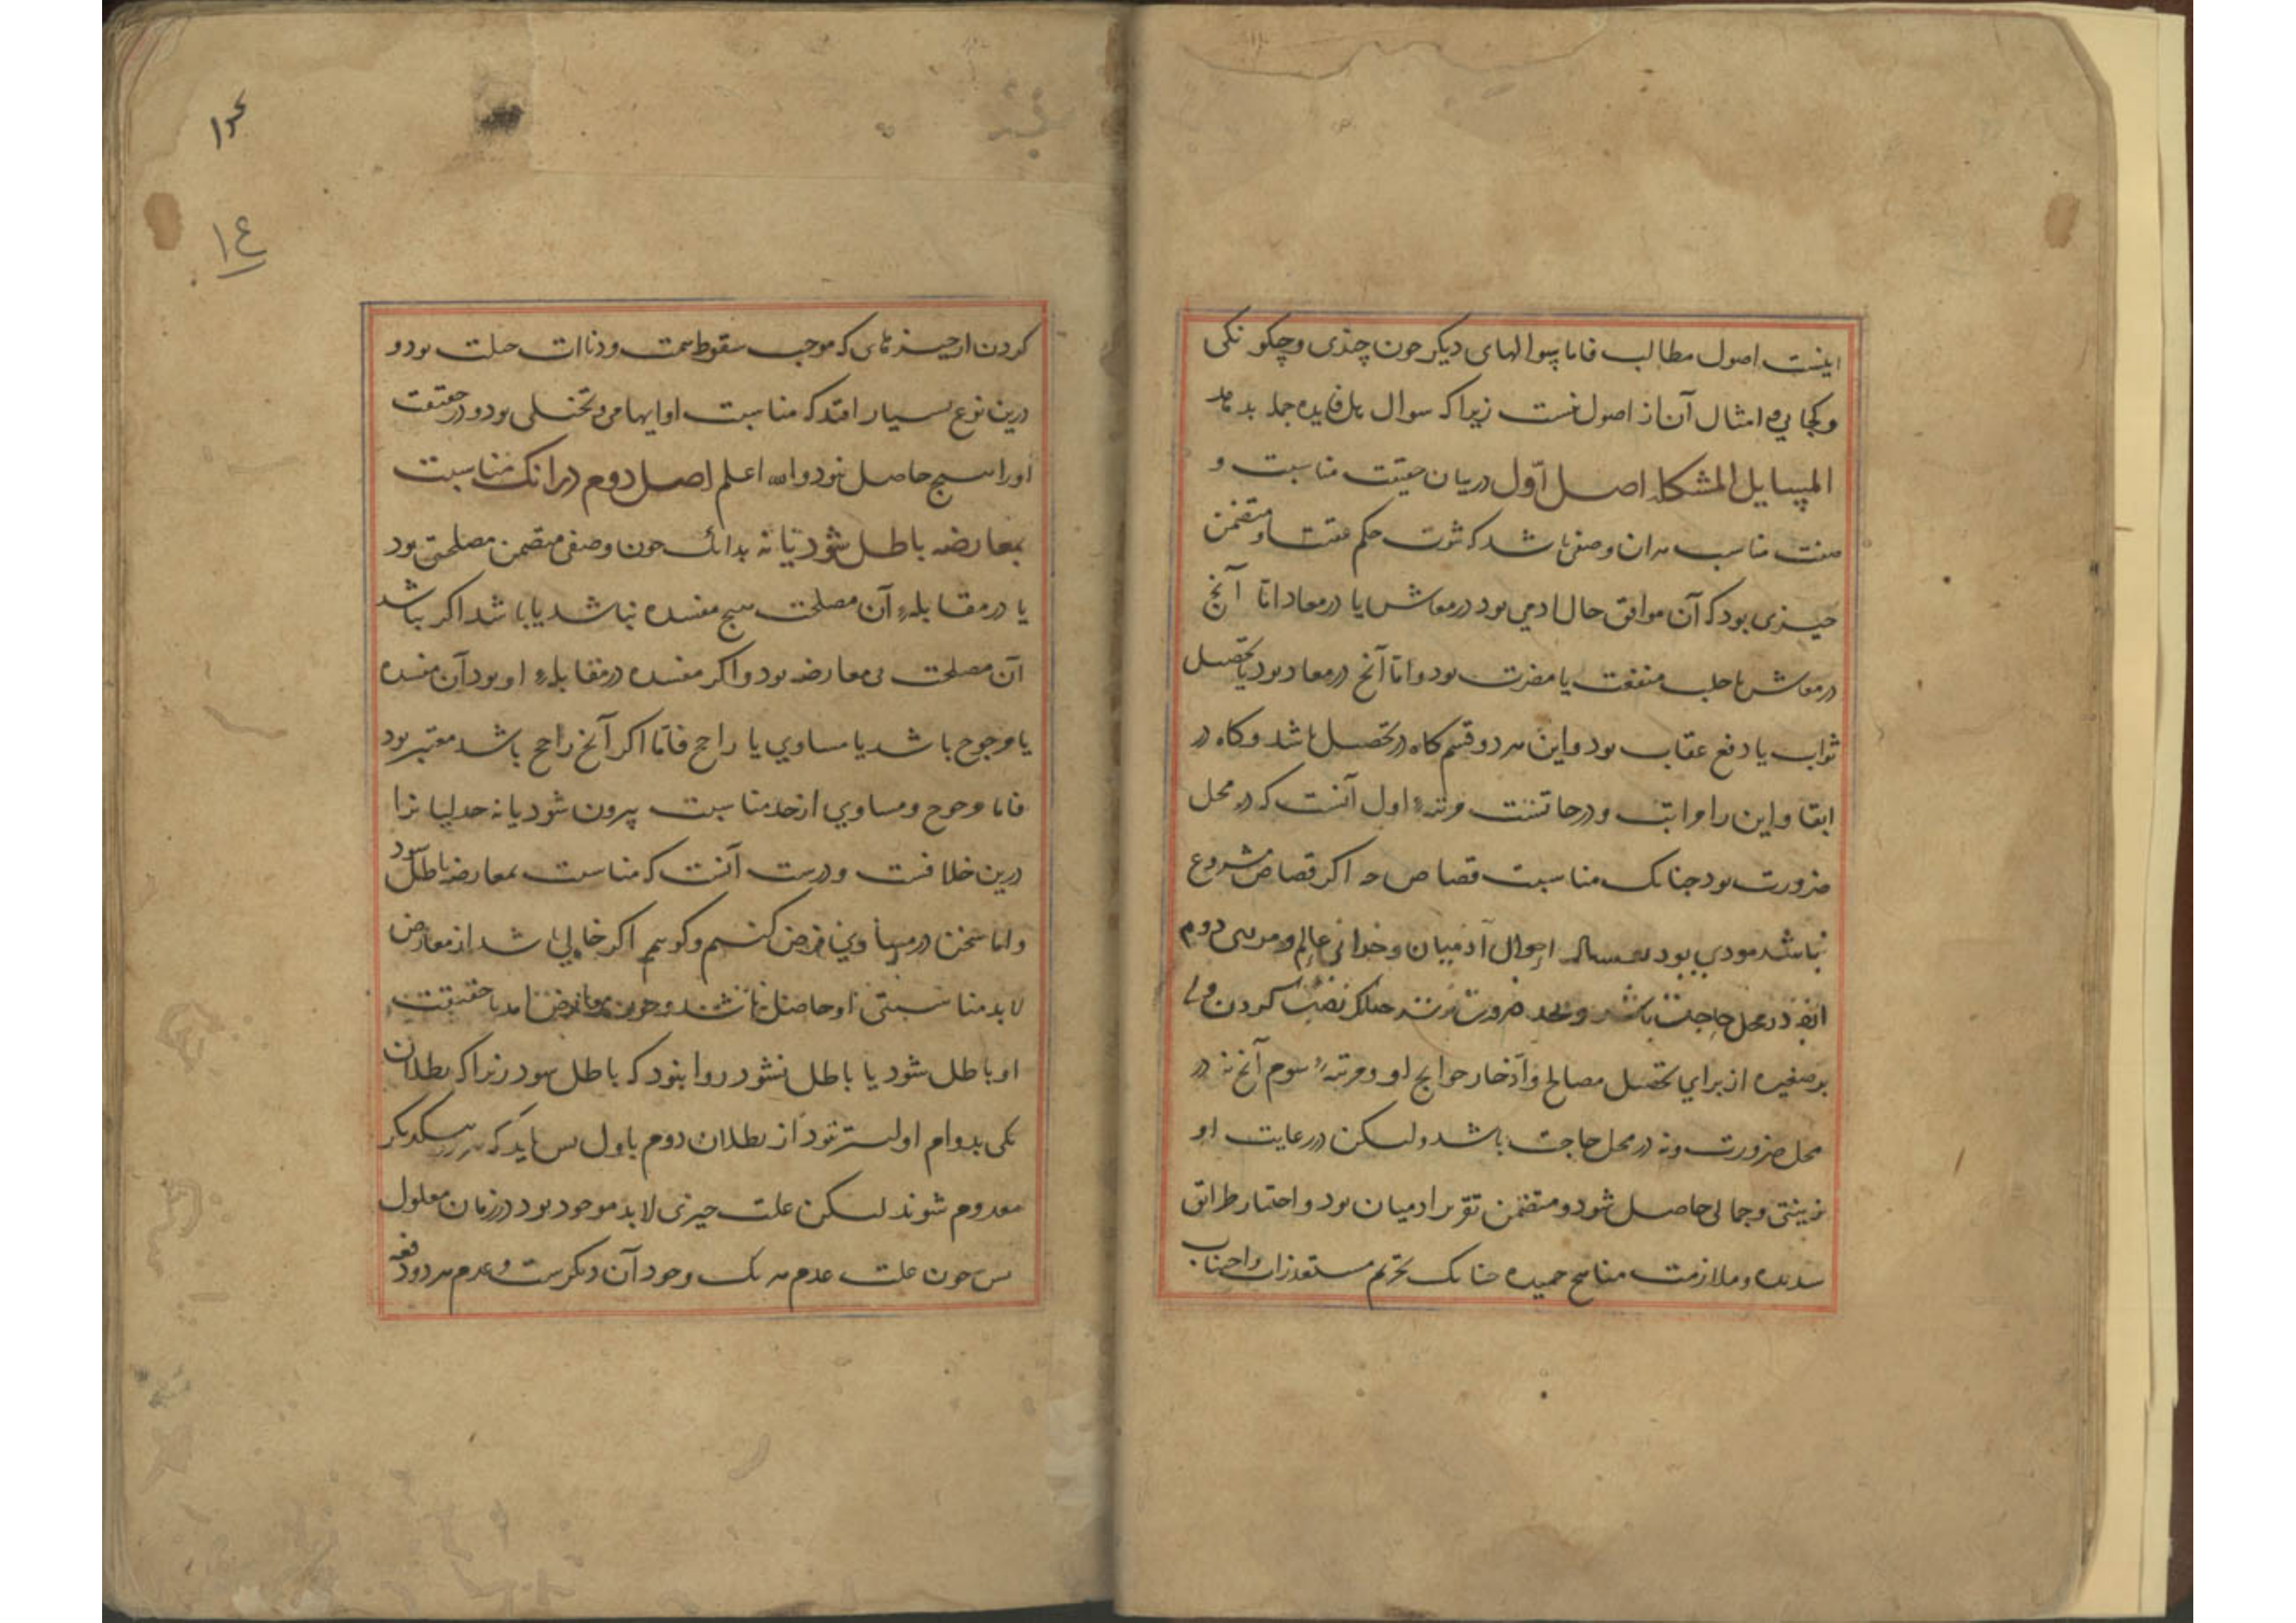 اینست اصول مطالب فاما سوالهای دیگر چون چندی و چگونگی
و کجایی و امثال آن از اصول نیست زیرا که سوال هل فایده جمله بدهد
المسایل المشکله اصل اوّل در بیان حقیقت مناسبت و
صفت مناسب هر آن وصفی باشد که ثبوت حکم عقیب او متضمن
چیزی بود که آن موافق حال ادمی بود در معاش یا در معاد اما آنچ
در معاش یا جلب منفعت یا مضرت بود و اما آنچ در معاد بود یا تحصیل
ثواب یا دفع عقاب بود و این هر دو قسم کاه در تحصیل باشد و کاه در
ابقا و این را مراتب و درجاتست مرتبهٔ اول آنست که در محل
ضرورت بود چنانک مناسبت قصاص چه اگر قصاص مشروع
نباشد مودی بود احوال آدمیان و خرابی عالم و مرتبهٔ دوم
آنچ در محل حاجت باشد و بحد ضرورت نرسد چنانک نصب کردن ولی
بر صغیره از برای تحصیل مصالح و ادّخار حوایج او و مرتبهٔ سوم آنچ نه در
محل ضرورت و نه در محل حاجت باشد ولیکن در رعایت او
زینتی و جمالی حاصل شود و متضمن تقریر ادمیان بود و اختیار طرایق
سدیده و ملازمت مناهج حمیده چنانک تحریم مستقذرات و اجتناب
۱٤
کردن از چیزهای که موجب سقوط سمت و دناات جبلت بود و
درین نوع بسیار افتد که مناسبت او ایهامی و تخیلی بود و در حقیقت
او را هیچ حاصل نبود والله اعلم اصل دوم در انک مناسبت
بمعارضه باطل شود یا نه بدانک چون وصفی متضمن مصلحتی بود
یا در مقابلهٔ آن مصلحت هیچ مفسده نباشد یا باشد اگر نباشد
آن مصلحت بی معارضه بود و اگر مفسده در مقابلهٔ او بود آن مفسده
یا مرجوح باشد یا مساوی یا راجح فاما اگر آنچ راجح باشد معتبر بود
فاما مرجوح و مساوی از حد مناسبت بیرون شود یا نه جدلیانرا
درین خلافست و درست آنست که مناسبت بمعارضه باطل شود
و اما سخن در مساوی فرض کنیم و گوییم اگر خالی باشد از معارض
لابد مناسبتی او حاصل باشد و چون معارض امد یا حقیقت
او باطل شود یا باطل نشود روا نبود که باطل شود زیرا که بطلان
یکی بدوام اولیتر نبود از بطلان دوم باول پس باید که هر بیکدیگر
معدوم شوند لیکن علت چیزی لابد موجود بود در زمان معلول
پس چون علت عدم هر یک وجود آن دیگرست و عدم هر دو دفعه